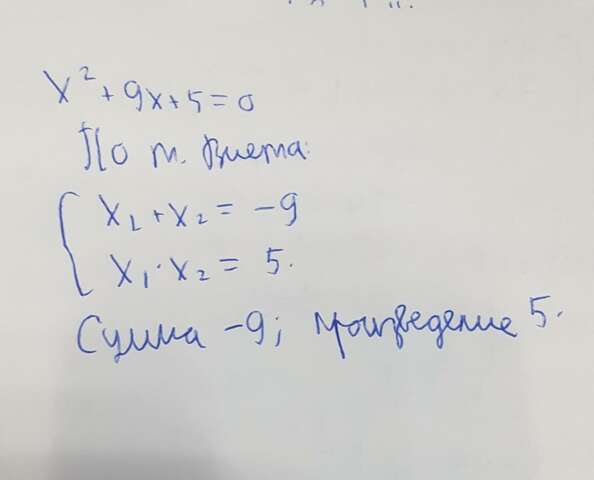 x² + 9x + 5 = 0
По т. Виета:
{ x₁ + x₂ = -9
x₁ · x₂ = 5.
Сумма -9; произведение 5.